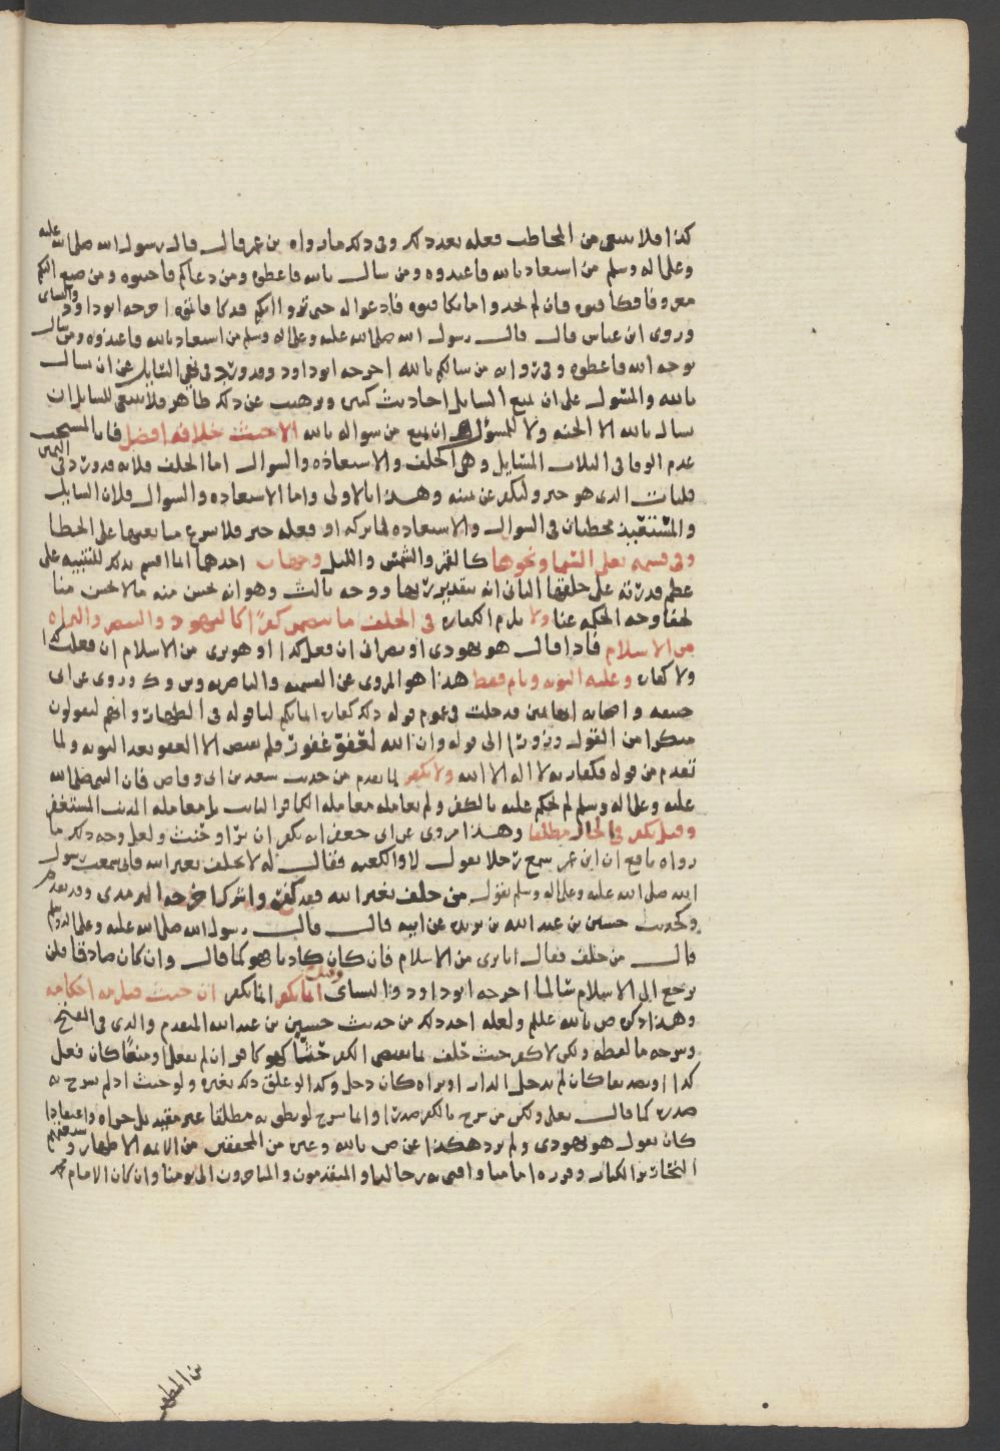 كذا فلا ينبغي من المخاطب فعله بعد ذلك وفي ذلك ما رواه بن عمر قال قال رسول الله صلى الله عليه
وعلى اله وسلم من استعاذ بالله فاعيذوه ومن سال بالله فاعطوه ومن دعاكم فاجيبوه ومن صنع اليكم
معروفا فكافيوه فان لم تجدوا ما تكافيوه فادعوا له حتى تروا انكم قد كافاتموه اخرجه ابو داود والنساى
وروى ابن عباس قال قال رسول الله صلى الله عليه وعلى اله وسلم من استعاذ بالله فاعيذوه ومن سال
بوجه الله فاعطوه وفي رواية من سالكم بالله اخرجه ابو داود وقد ورد في نهي السايل عن ان يسال
بالله والمسول على ان يمنع السايل احاديث كثير وترهيب عن ذلك ظاهر فلا ينبغي للسايل ان
يسال بالله الا الجنة ولا للمسؤل ان يمنع من سواله بالله الا حيث خلافه افضل فانما المستحب
عدم الوفا في الثلاث المسايل وهي الحلف والاستعاذه والسوال اما الحلف فلانه قد ورد في اليمين
فليات الذي هو خير وليكفر عن يمينه وهذا بالاولى واما الاستعاذه والسوال فلان السايل
والمستعيذ مخطيان في السوال والاستعاذه لما تركه او فعله خير فلا يسرع مسا بعتهما على الخطا
وفي قسمه تعلى بالسما ونحوها كالقمر والشمس والليل وجهان احدهما انما اقسم بذلك للتنبيه على
عظم قدرته على خلقها الثاني انه بتقدير ربها ووجه ثالث وهو انه يحسن منه ما لا يحسن منا
لخفا وجه الحكمه عنا ولا يلزم الكفاره في الحلف بما يتضمن كفرًا كاليهود والتنصر والبراه
من الاسلام فاذا قال هو يهودي او نصراني ان فعل كذا او هو بري من الاسلام ان فعلت كذا
ولا كفاره وعليه التوبه ويام فقط هذا هو المروي عن القسميه والناصريه وس وك وروي عن ابى
حنيفه واصحابه انها يمين قد دخلت في عموم قوله ذلك كفارة ايمانكم لنا قوله في الظهار وانهم ليقولون
منكرا من القول وزورا الى قوله وان الله لعفوّ غفورٌ فلم يقتض الا العفو بعد التوبه ولما
تقدم من قوله فكفارته لا اله الا الله ولا يكفر لما تقدم من حديث سعد بن ابي وقاص فان النبي صلى الله
عليه وعلى اله وسلم لم يحكم عليه بالكفر ولم يعامله معاملة الكافر التايب بل معاملة المذنب المستغفر
وقيل يكفر في الحال مطلقا وهذا مروي عن ابى جعفر انه يكفر ان برّ او حنث ولعل وجه ذلك ما
رواه نافع ان ابن عمر سمع رجلا يقول لا والكعبه فقال له لا تحلف بغير الله فاني سمعت رسول
الله صلى الله عليه وعلى اله وسلم يقول من حلف بغير الله فقد كفر او اشرك اخرجه الترمذى وقد تقدم
وحديث حسين بن عبد الله بن بريده عن ابيه قال قال رسول الله صلى الله عليه وعلى اله وسلم
قال من حلف فقال انا برى من الاسلام فان كان كاذبا فهو كما قال وان كان صادقا فلن
يرجع الى الاسلام سالما اخرجه ابو داود والنساى وقيل انما يكفر ان حنث قيل مه احكامه
وهذا ذكره ص بالله عللم ولعله اخذ ذلك من حديث حسين بن عبد الله المتقدم والذي في الفتح
وشرحه ما لفظه ولكن لا كفر حيث حلف بما يقتضي الكفر حثًّا كهو كافر ان لم يفعل او منعًا كان فعل
كذا او تصديقا كان لم يدخل الدار او براه كان دخل وكذا لو علق ذلك بغيره ولو حنث اذ لم يشرح به
صدره كما قال تعلى ولكن من شرح بالكفر صدرا وانما شرح لو نطق به مطلقا غير مقيد بل جراه واعتقادا
كان يقول هو يهودي ولم يرد هكذا عن ص بالله وغيره من المحققين من الايمه الاطهار وشيعتهم
النحارير الكبار وقرره امامنا وافتى به رجالنا والمتقدمون والمتاخرون الى يومنا وان كان الامام محمد
بن المطهر